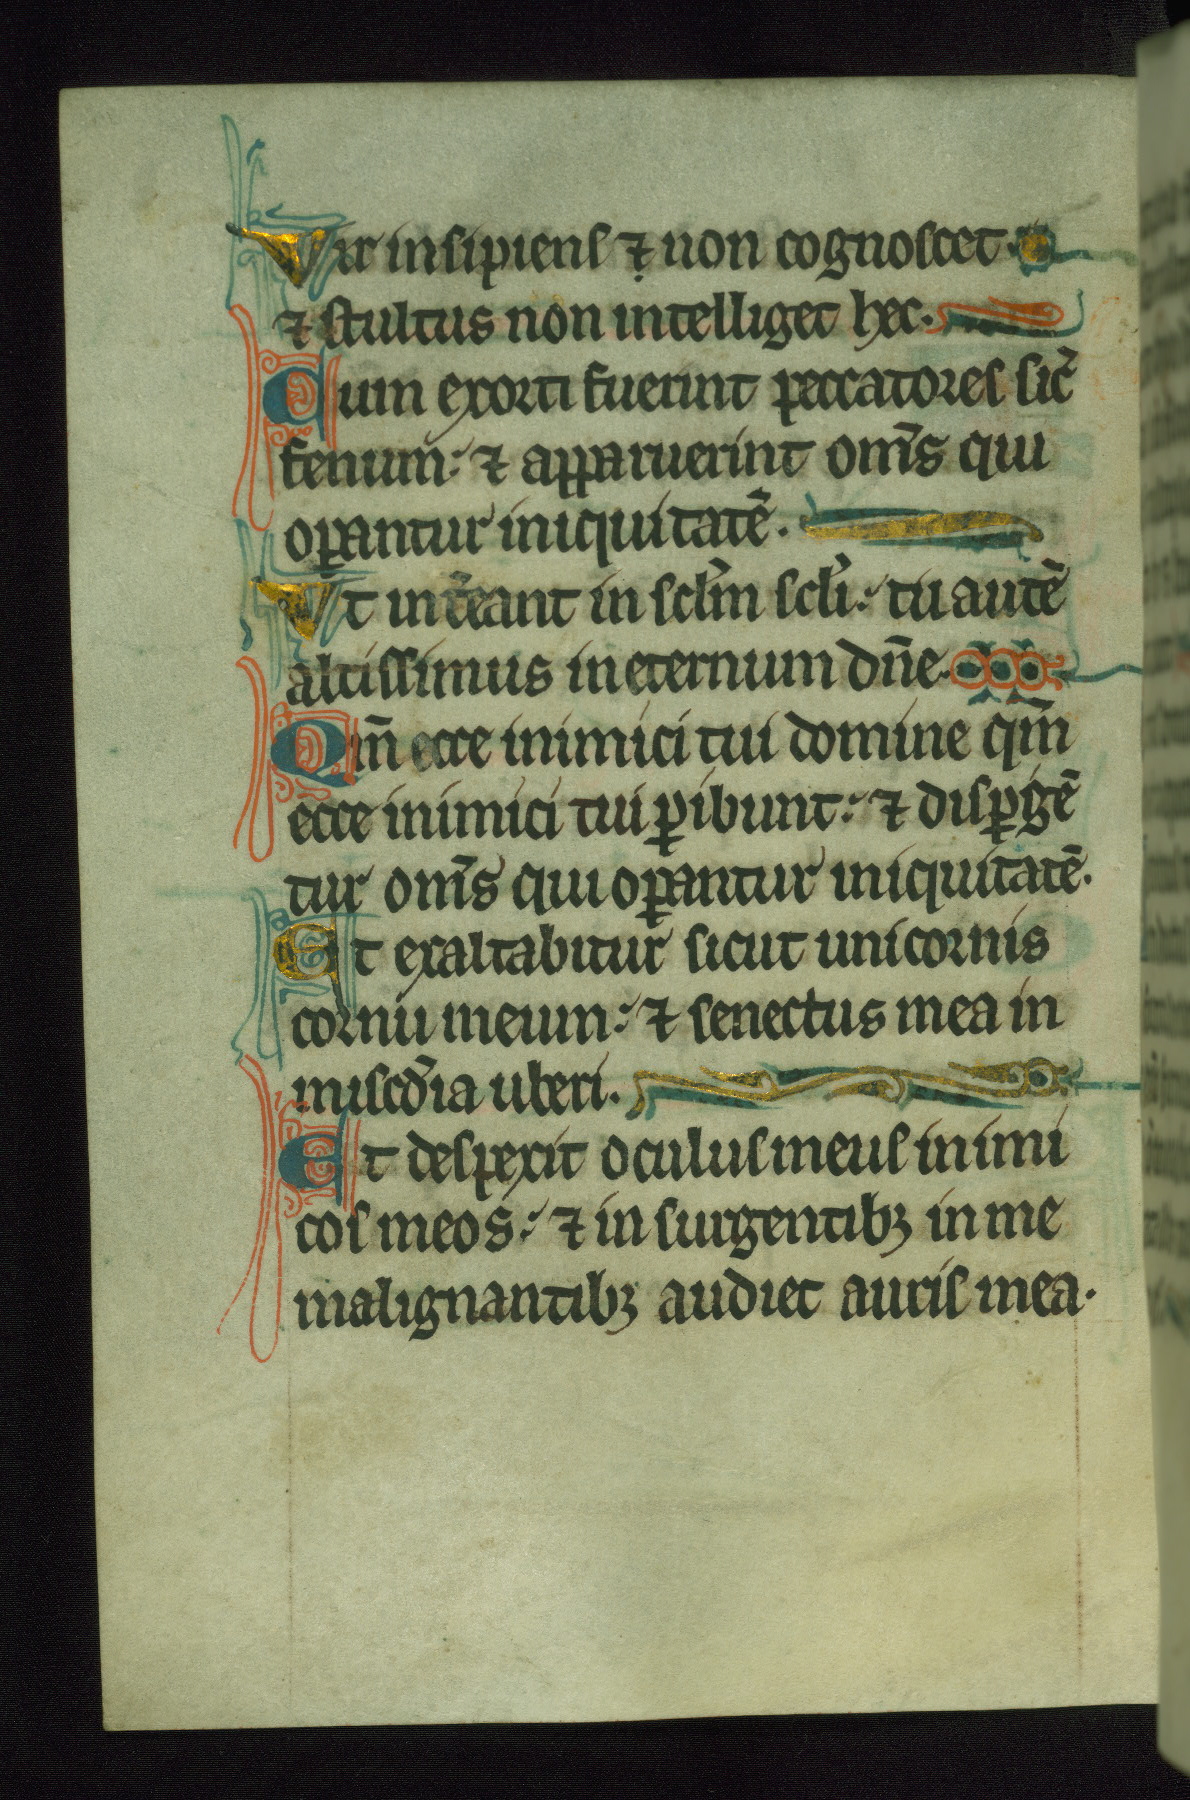 Vir insipiens ⁊ non cognoscet.
⁊ stultus non intelliget hec.
Cum exorti fuerint peccatores sic̄
fenum: ⁊ apparuerint om̄s qui
oꝑantur iniquitatē.
Vt int̄eant in sclm̄ scl̄i: tu autē
altissimus in eternum dn̄e.
Qm̄ ecce inimici tui domine qm̄
ecce inimici tui ꝑibunt: ⁊ disꝑgē
tur om̄s qui oꝑantur iniquitatē.
Et exaltabitur sicut unicornis
cornu meum: ⁊ senectus mea in
misc̄dia uberi.
Et despexit oculus meus inimi
cos meos: ⁊ in surgentibꝫ in me
malignantibꝫ audiet auris mea.